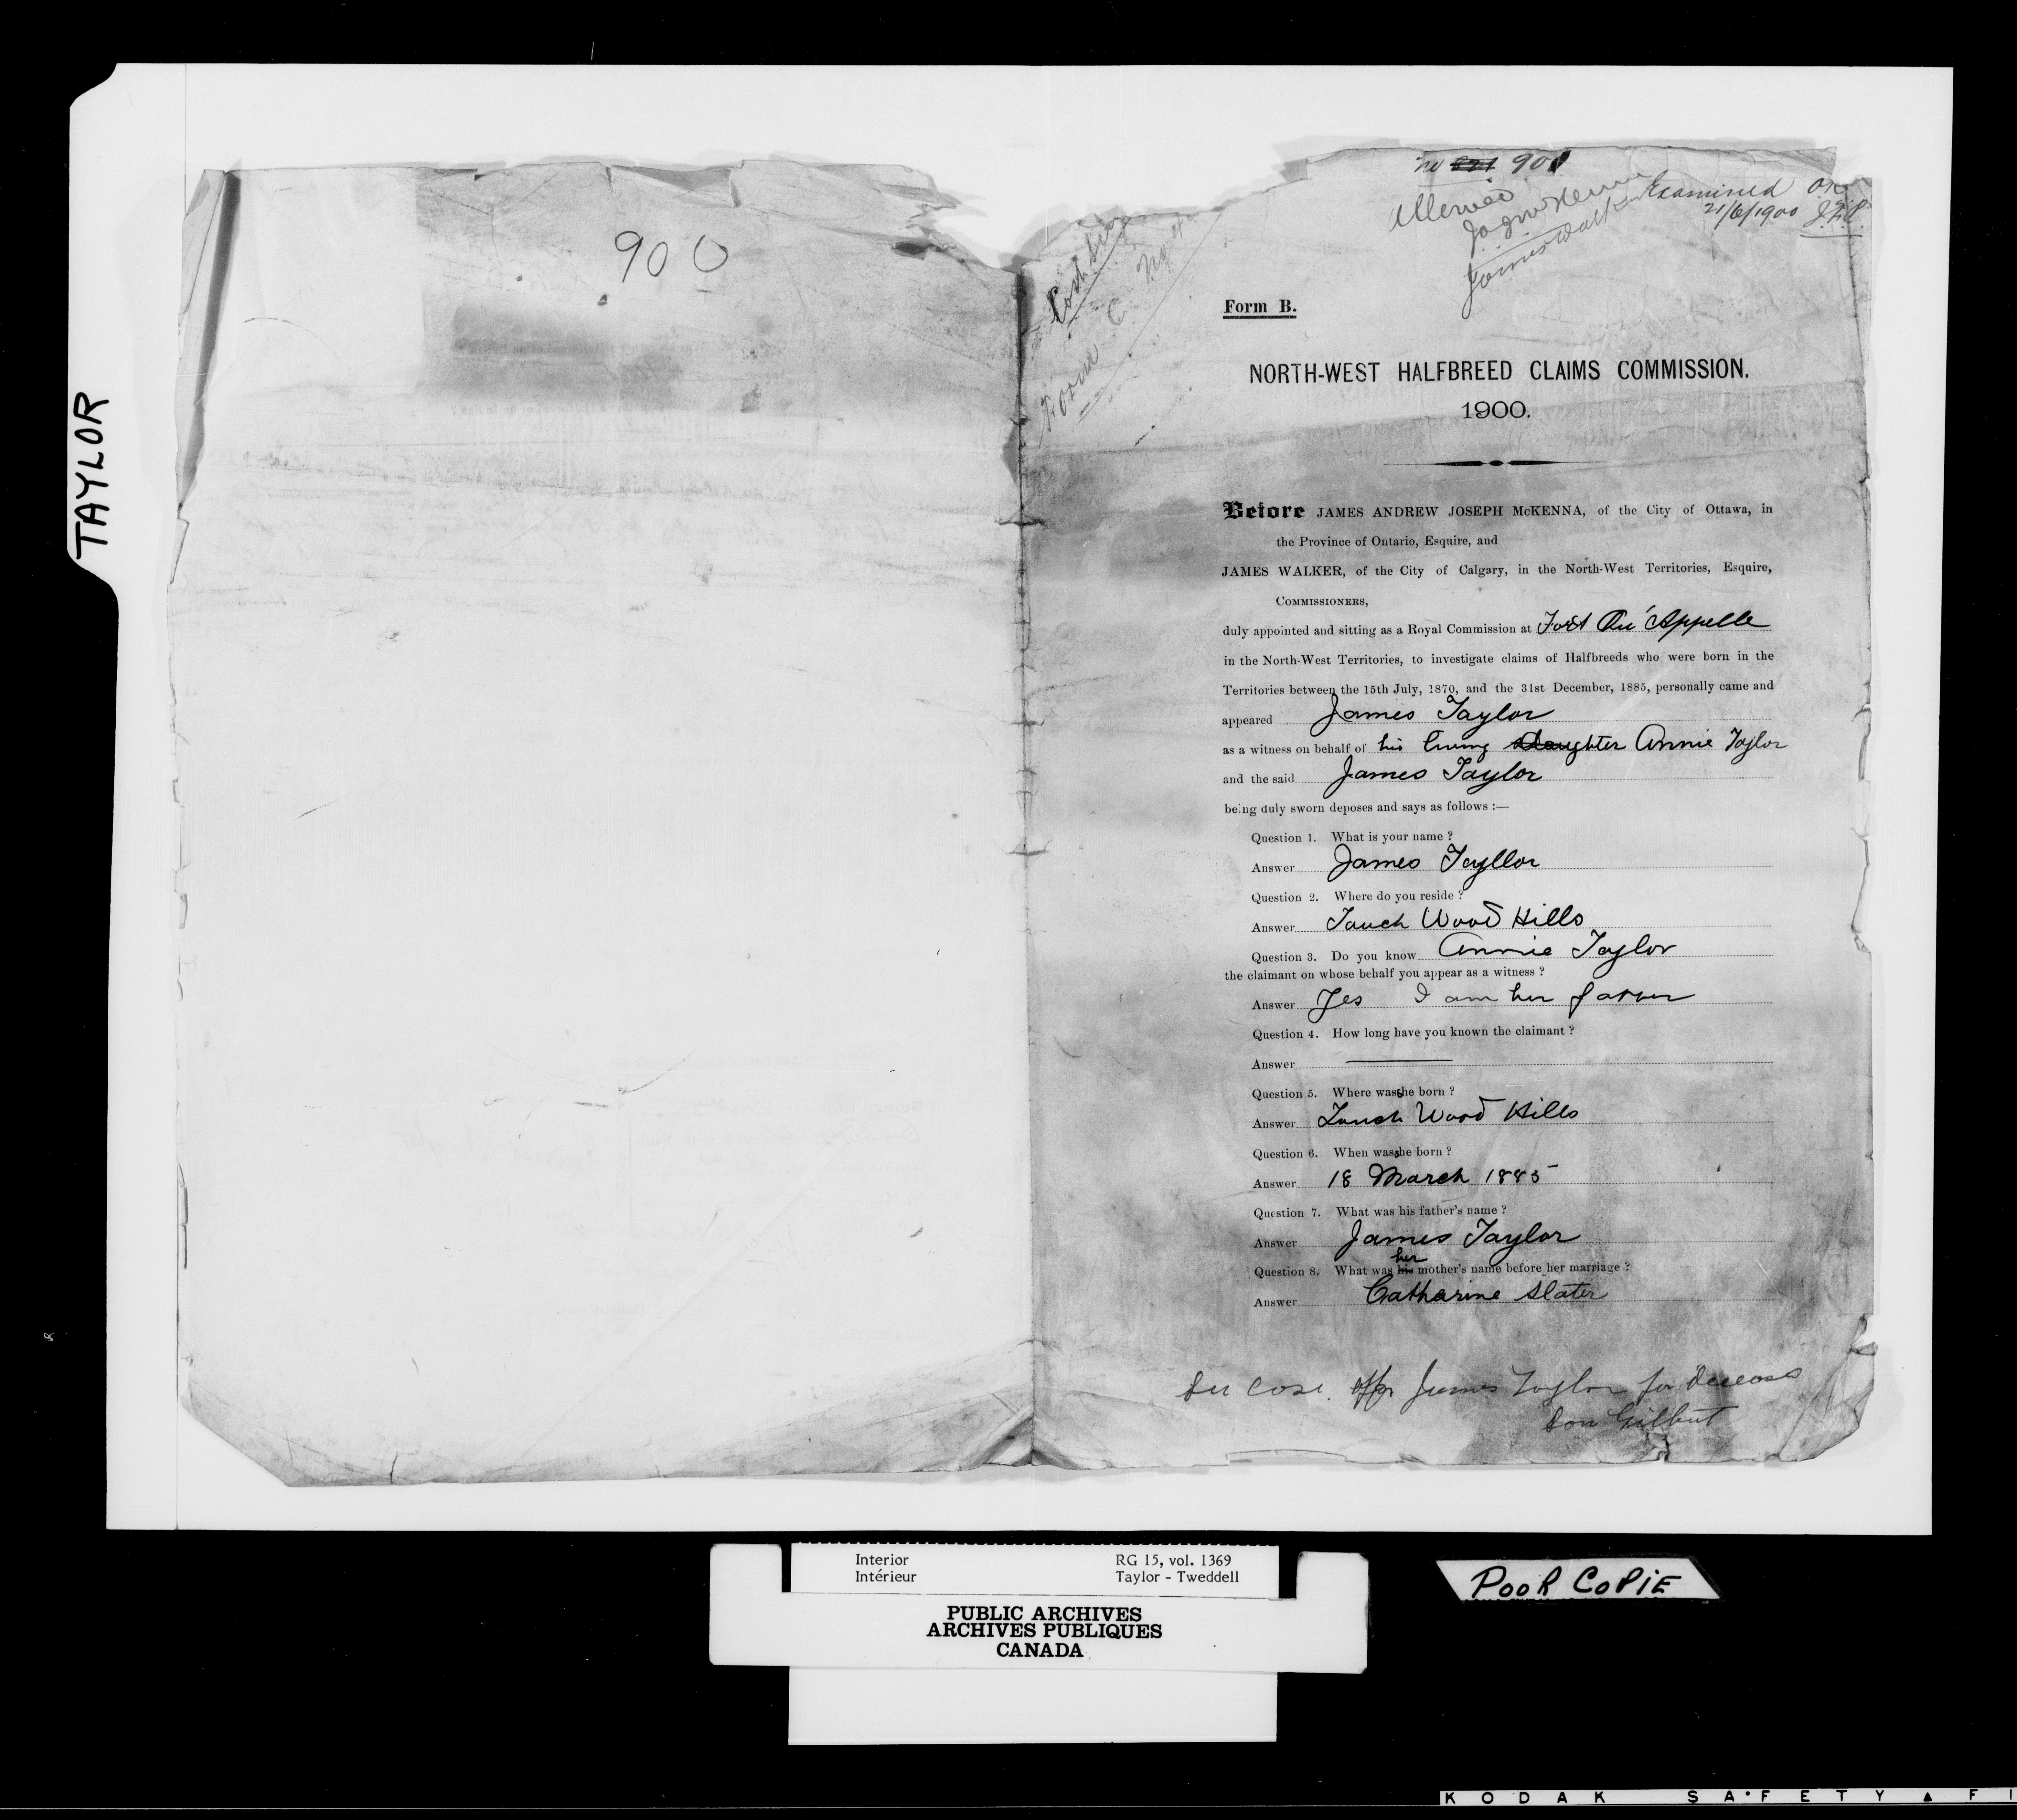 TAYLOR
900
no 901
Allowed
James Walker
Examined OK
21/6/1900
Form C.
Form B.
NORTH-WEST HALFBREED CLAIMS COMMISSION.
1900.
Before JAMES ANDREW JOSEPH McKENNA, of the City of Ottawa, in
the Province of Ontario, Esquire, and
JAMES WALKER, of the City of Calgary, in the North-West Territories, Esquire,
COMMISSIONERS,
duly appointed and sitting as a Royal Commission at Fort Qu'Appelle
in the North-West Territories, to investigate claims of Halfbreeds who were born in the
Territories between the 15th July, 1870, and the 31st December, 1885, personally came and
appeared James Taylor
as a witness on behalf of his living daughter Annie Taylor
and the said James Taylor
being duly sworn deposes and says as follows :—
Question 1. What is your name ?
Answer James Tayllor
Question 2. Where do you reside ?
Answer Touch Wood Hills
Question 3. Do you know Annie Taylor
the claimant on whose behalf you appear as a witness ?
Answer Yes I am her father
Question 4. How long have you known the claimant ?
Answer
Question 5. Where was she born ?
Answer Touch Wood Hills
Question 6. When was she born ?
Answer 18 March 1885
Question 7. What was his father's name ?
Answer James Taylor
her
Question 8. What was his mother's name before her marriage ?
Answer Catharine Slater
See case. of James Taylor for deceas
Son Gilbert
Interior RG 15, vol. 1369
Intérieur Taylor - Tweddell
PUBLIC ARCHIVES
ARCHIVES PUBLIQUES
CANADA
POOR COPIE
KODAK SA·FETY ▲ FI